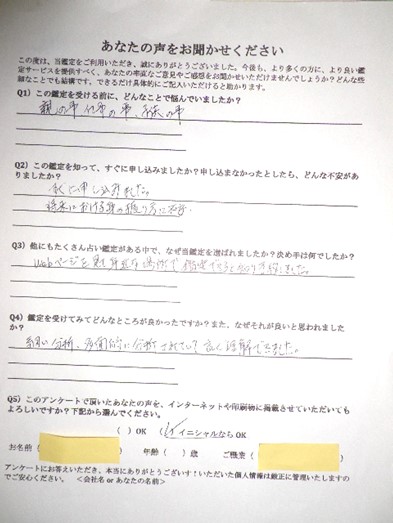 あなたの声をお聞かせください
この度は、当鑑定をご利用いただき、誠にありがとうございました。今後も、より多くの方に、より良い鑑
定サービスを提供すべく、あなたの率直なご意見やご感想をお聞かせいただけませんでしょうか？どんな些
細なことでも結構です。できるだけ具体的にご記入いただけると助かります。
Q1）この鑑定を受ける前に、どんなことで悩んでいましたか？
親の事、仕事の事、の事
Q2）この鑑定を知って、すぐに申し込みましたか？申し込まなかったとしたら、どんな不安があ
りましたか？
すぐに申し込みました
将来における
Q3）他にもたくさん占い鑑定がある中で、なぜ当鑑定を選ばれましたか？決め手は何でしたか？
Webページを見て身近な場所で鑑定できると
Q4）鑑定を受けてみてどんなところが良かったですか？また、なぜそれが良いと思われました
か？
分析、多角的に分析されていて良く理解できました。
Q5）このアンケートで頂いたあなたの声を、インターネットや印刷物に掲載させていただいても
よろしいですか？下記から選んでください。
（ ）OK （✓）イニシャルなら OK
お名前（ 年齢（ ）歳 ご職業（
アンケートにお答えいただき、本当にありがとうございす！いただいた個人情報は厳正に管理いたしますの
でご安心ください。 ＜会社名 or あなたの名前＞